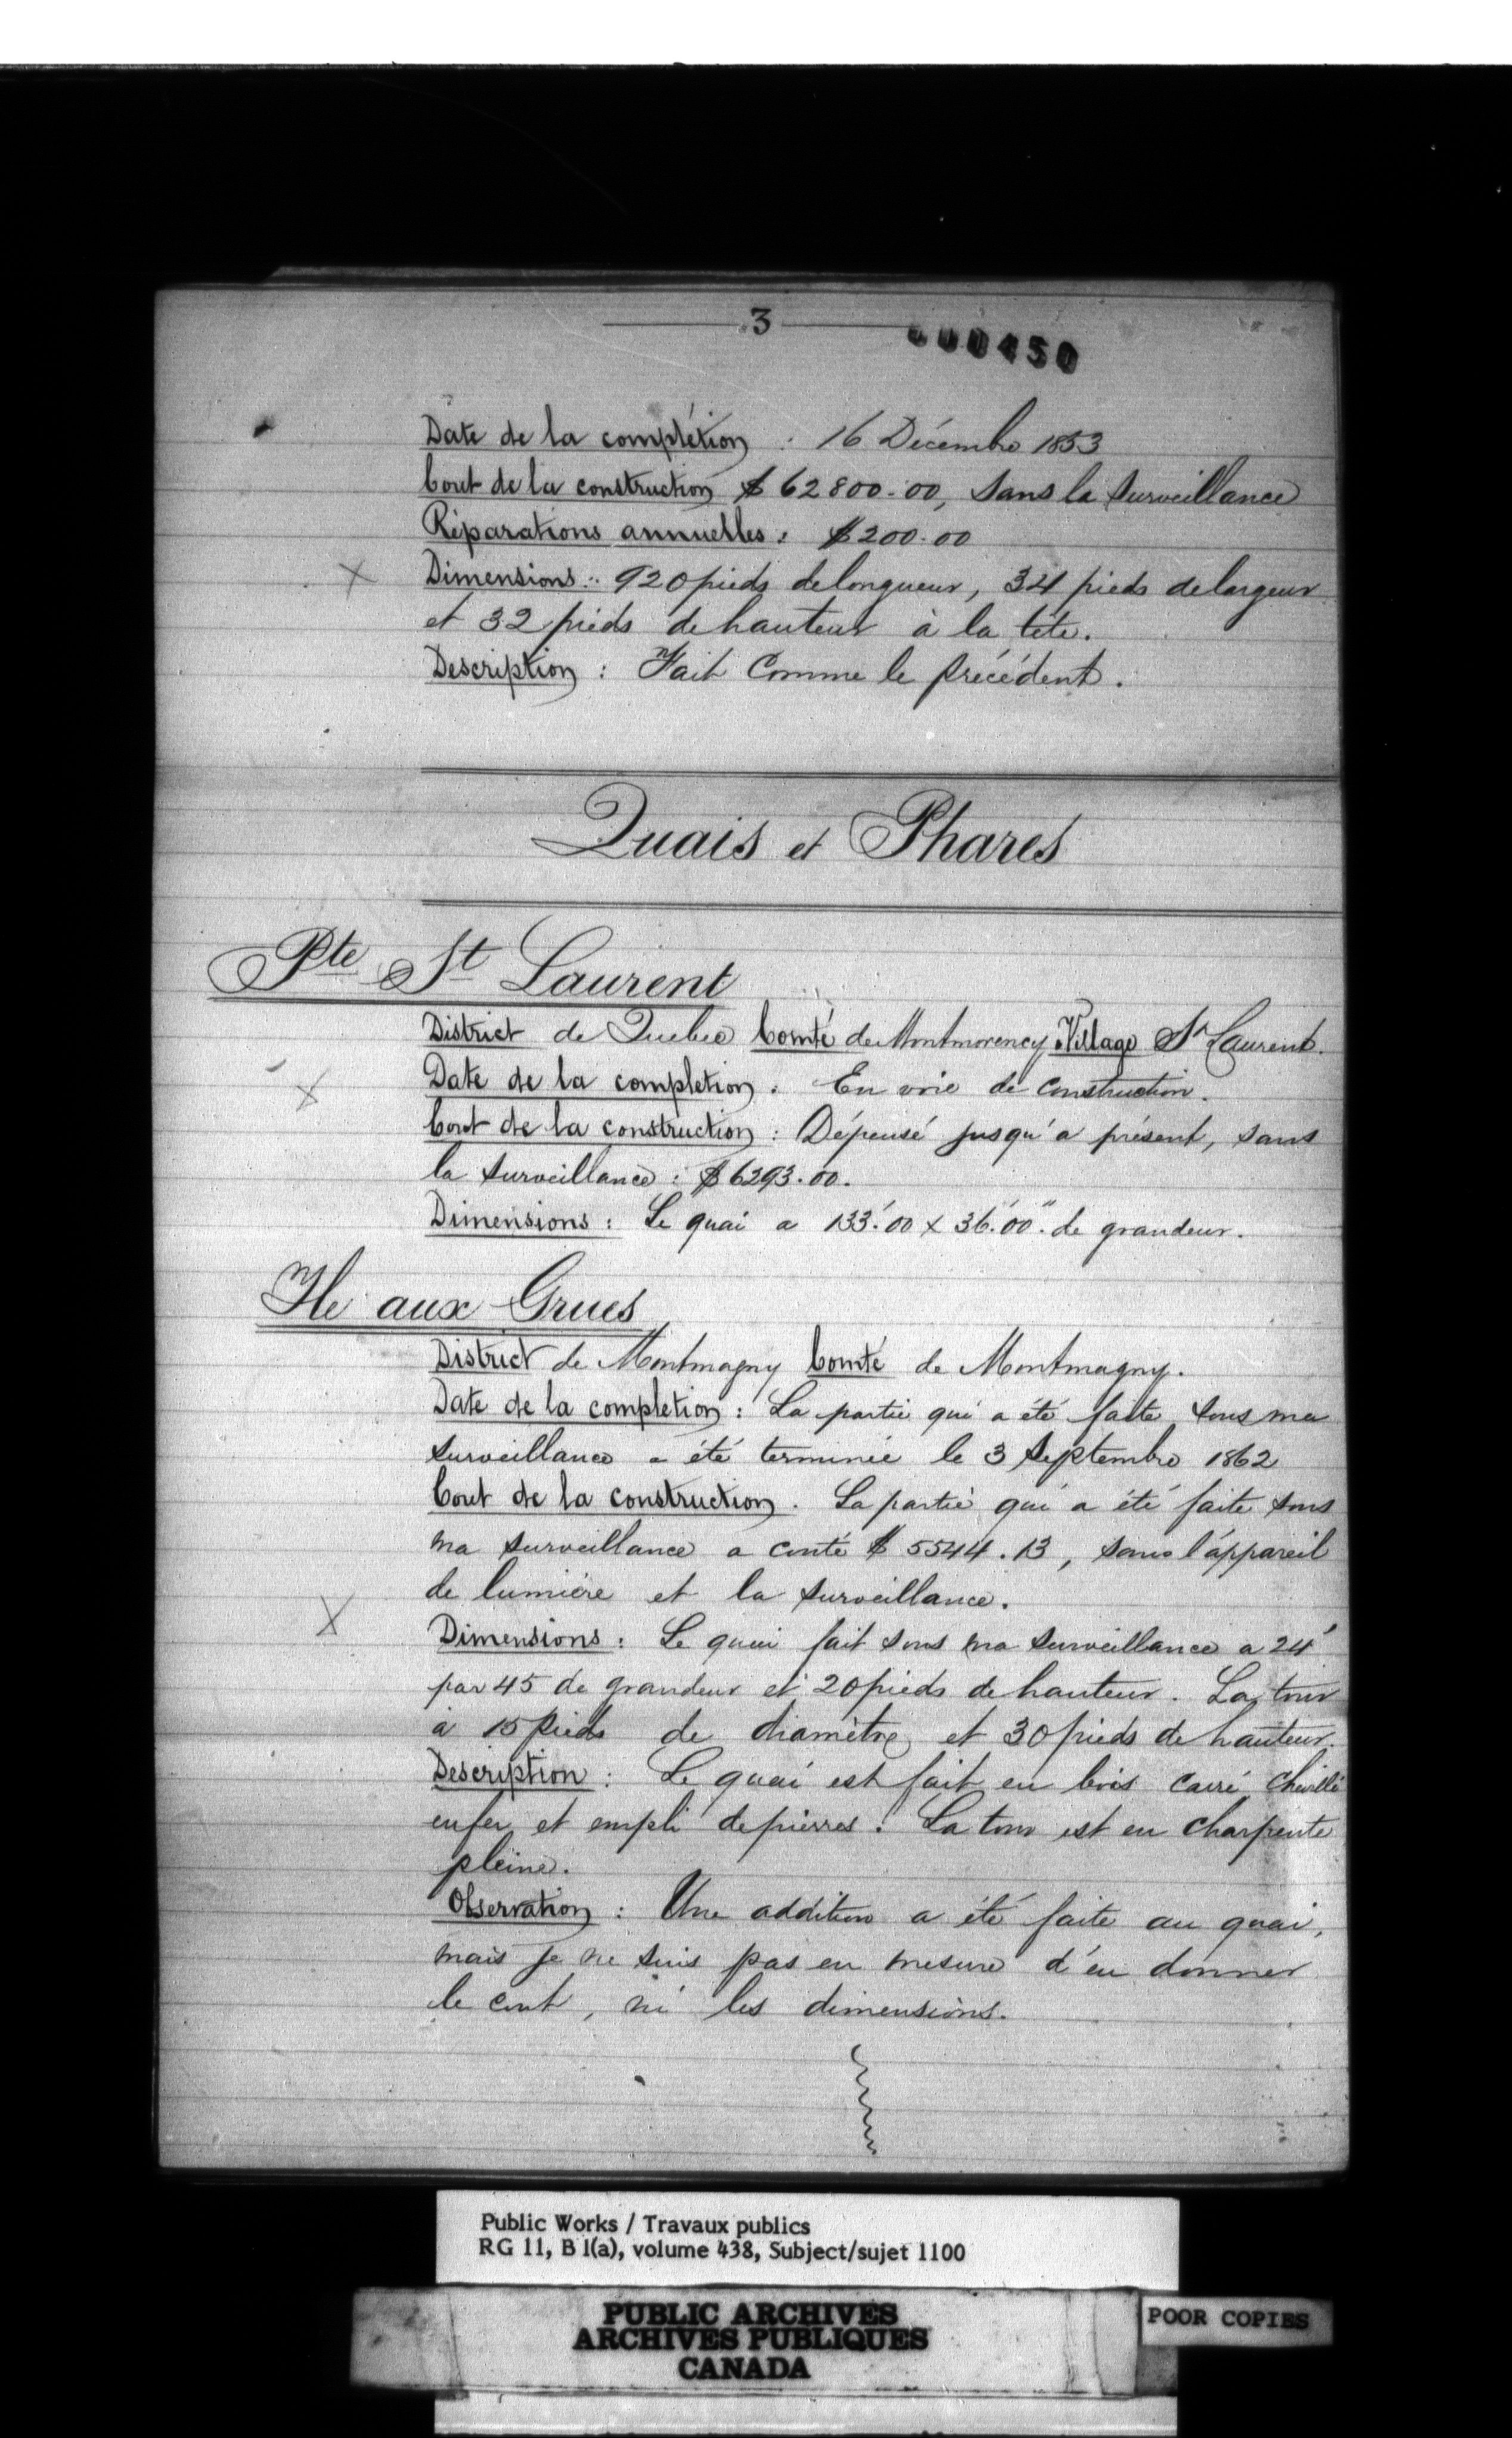 3
000450
Date de la complétion : 16 Décembre 1853
Cout de la construction $ 62800.00, sans la surveillance
Réparations annuelles : $200.00
Dimensions : 920 pieds de longueur, 34 pieds de largeur
et 32 pieds de hauteur à la tête.
Description : Fait Comme le précédent.
Quais et Phares
Pte St Laurent
District de Quebec Comté de Montmorency. Village St Laurent.
Date de la completion : En voie de construction.
Cout de la construction : Dépensé jusqu'a présent, sans
la surveillance : $6293.00.
Dimensions : Le quai a 133'.00 x 36'.00". de grandeur.
Ile aux Grues
District de Montmagny Comté de Montmagny.
Date de la completion : La partie qui a été faite sous ma
surveillance a été terminée le 3 Septembre 1862
Cout de la construction. La partie qui a été faite sous
ma surveillance a couté $ 5544.13, sans l'appareil
de lumière et la surveillance.
Dimensions : Le quai fait sous ma surveillance a 24'
par 45 de grandeur et 20 pieds de hauteur. La tour
a 15 pieds de diamètre et 30 pieds de hauteur.
Description : Le quai est fait en bois carré chevillé
en fer et empli de pierres. La tour est en charpente
pleine.
Observation : Une addition a été faite au quai,
mais je ne suis pas en mesure d'en donner
le cout, ni les dimensions.
Public Works / Travaux publics
RG 11, B 1(a), volume 438, Subject/sujet 1100
PUBLIC ARCHIVES
ARCHIVES PUBLIQUES
CANADA
POOR COPIES